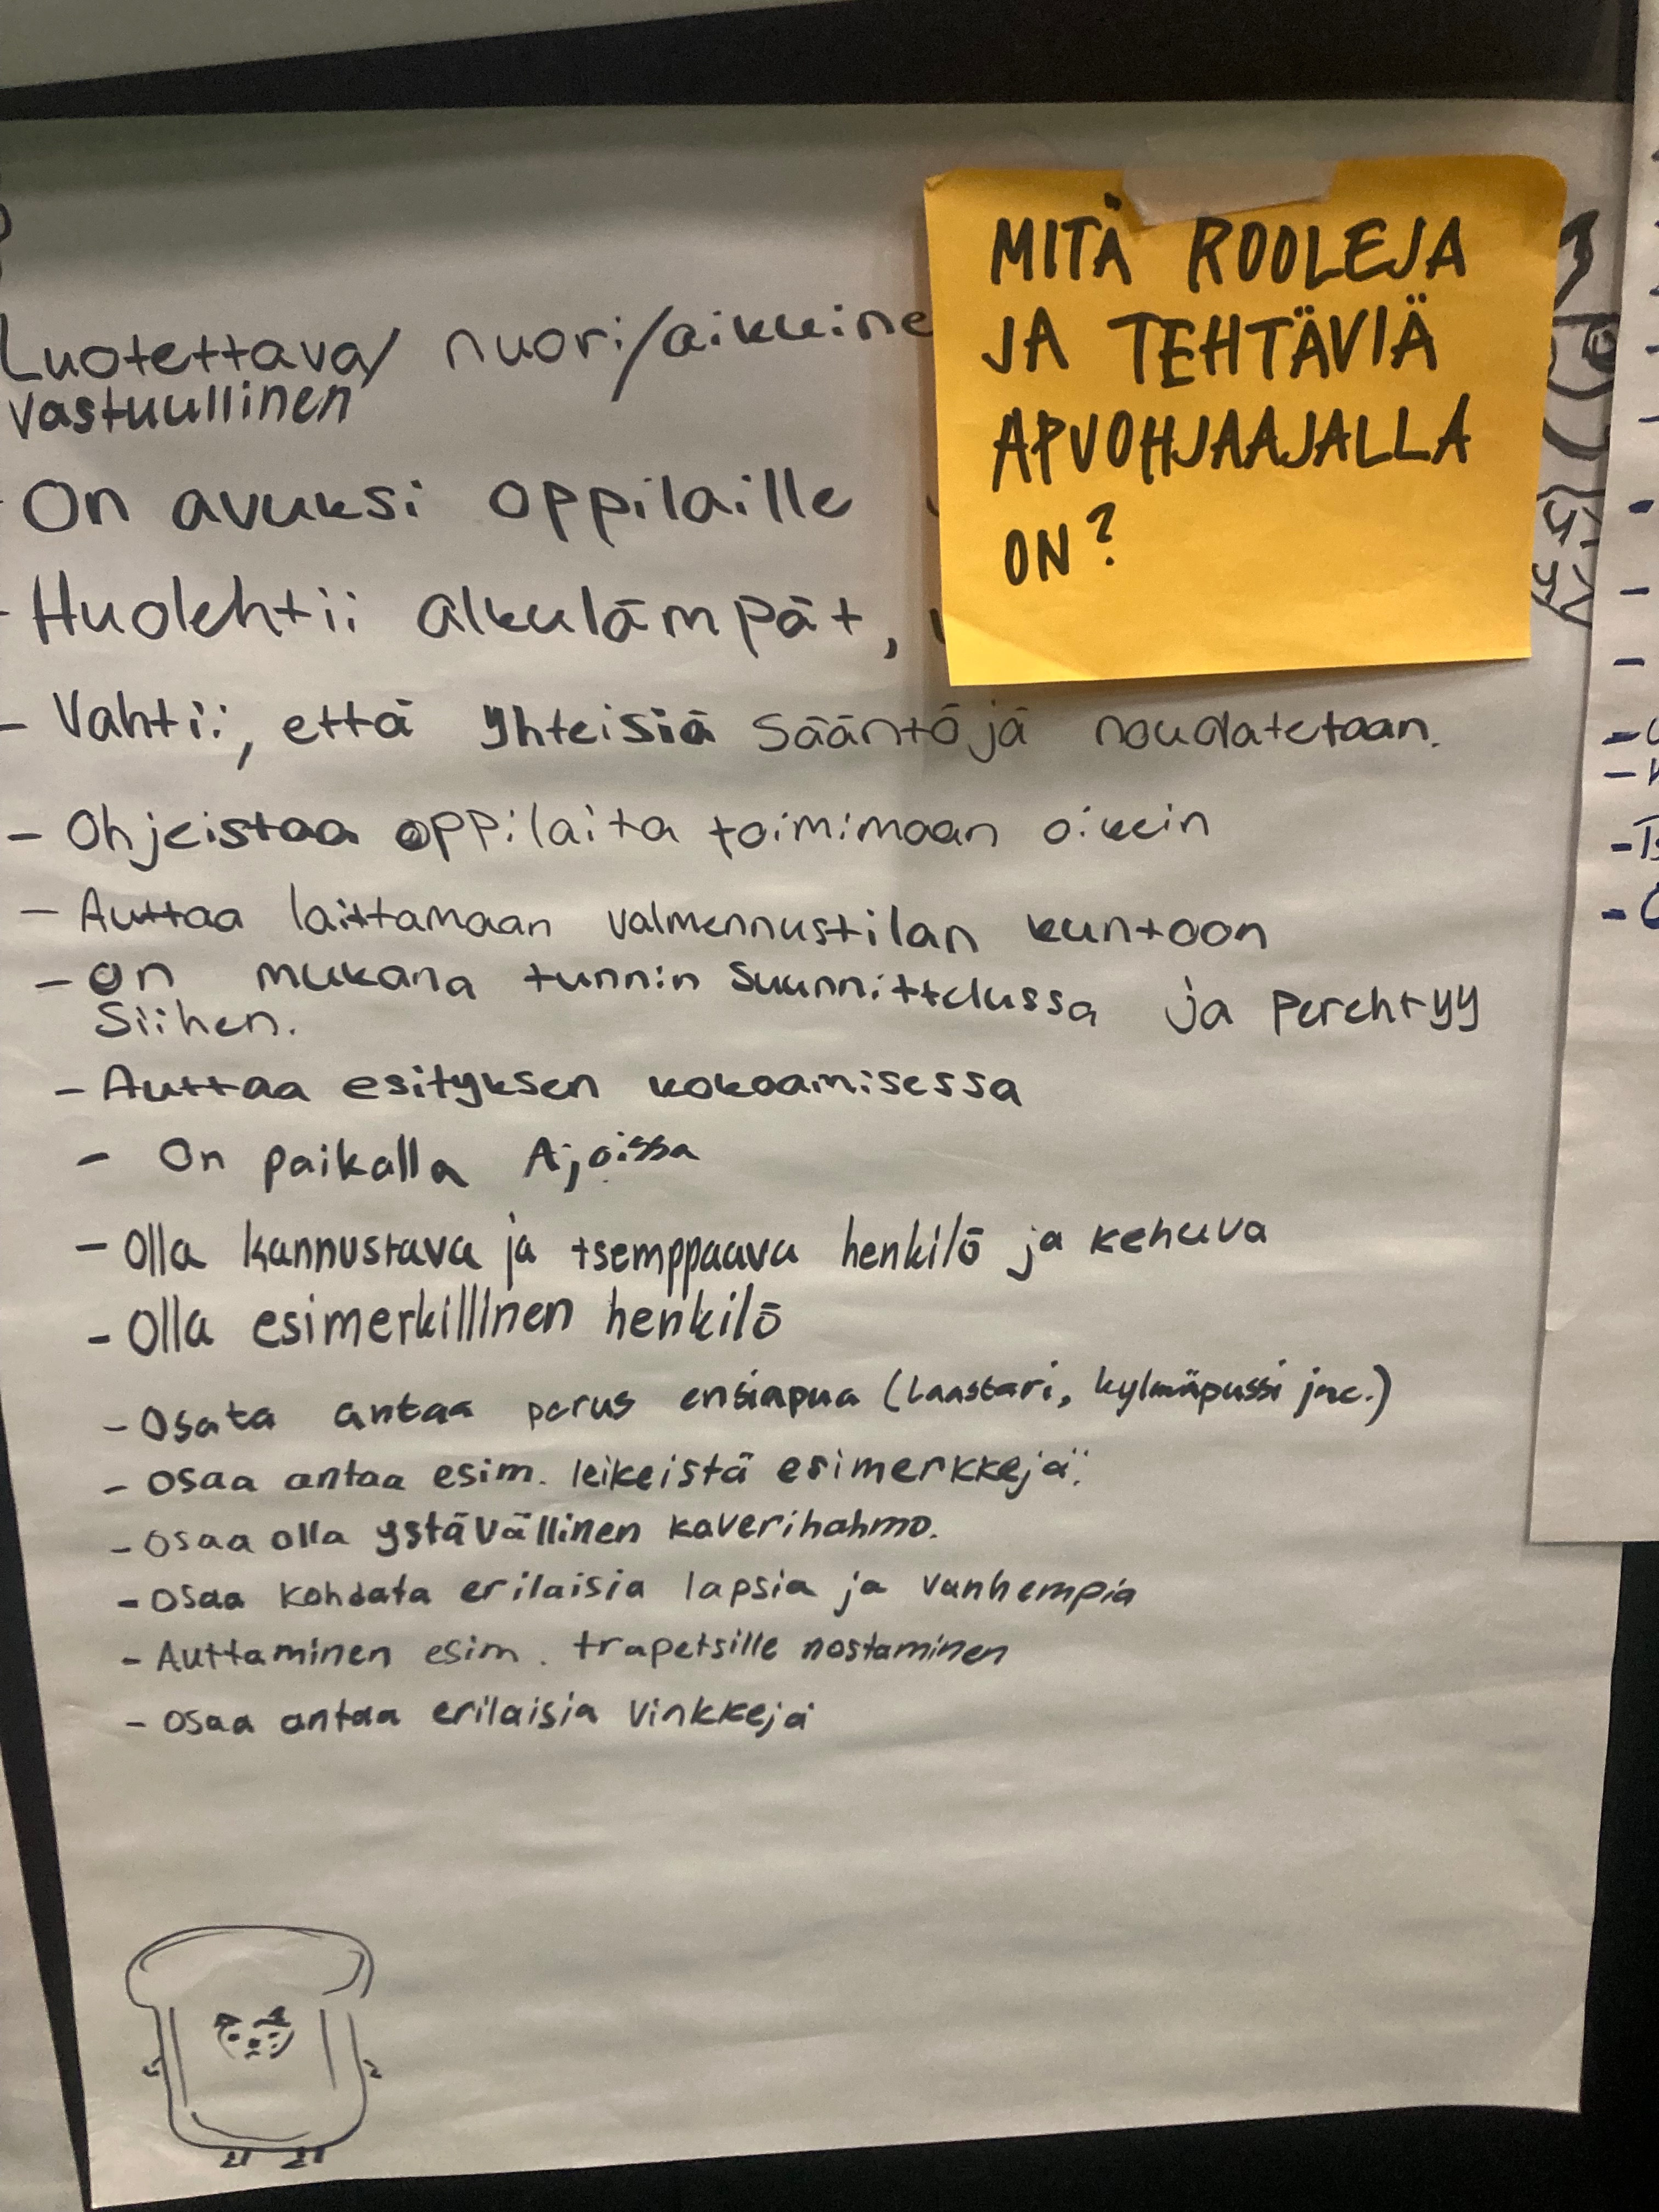 MITÄ ROOLEJA
JA TEHTÄVIÄ
APUOHJAAJALLA
ON?
Luotettava/ nuori/aikuine
vastuullinen
On avuksi oppilaille
- Huolehtii alkulämpät,
- Vahtii, että yhteisiä sääntöjä noudatetaan.
- Ohjeistaa oppilaita toimimaan oikein
- Auttaa laittamaan valmennustilan kuntoon
- On mukana tunnin suunnittelussa ja perehtyy
siihen.
- Auttaa esityksen kokoamisessa
- On paikalla Ajoissa
- Olla kannustava ja tsemppaava henkilö ja kehuva
- Olla esimerkillinen henkilö
- Osata antaa perus ensiapua (laastari, kylmäpussi jne.)
- Osaa antaa esim. leikeistä esimerkkejä.
- Osaa olla ystävällinen kaverihahmo.
- Osaa kohdata erilaisia lapsia ja vanhempia
- Auttaminen esim. trapetsille nostaminen
- Osaa antaa erilaisia vinkkejä